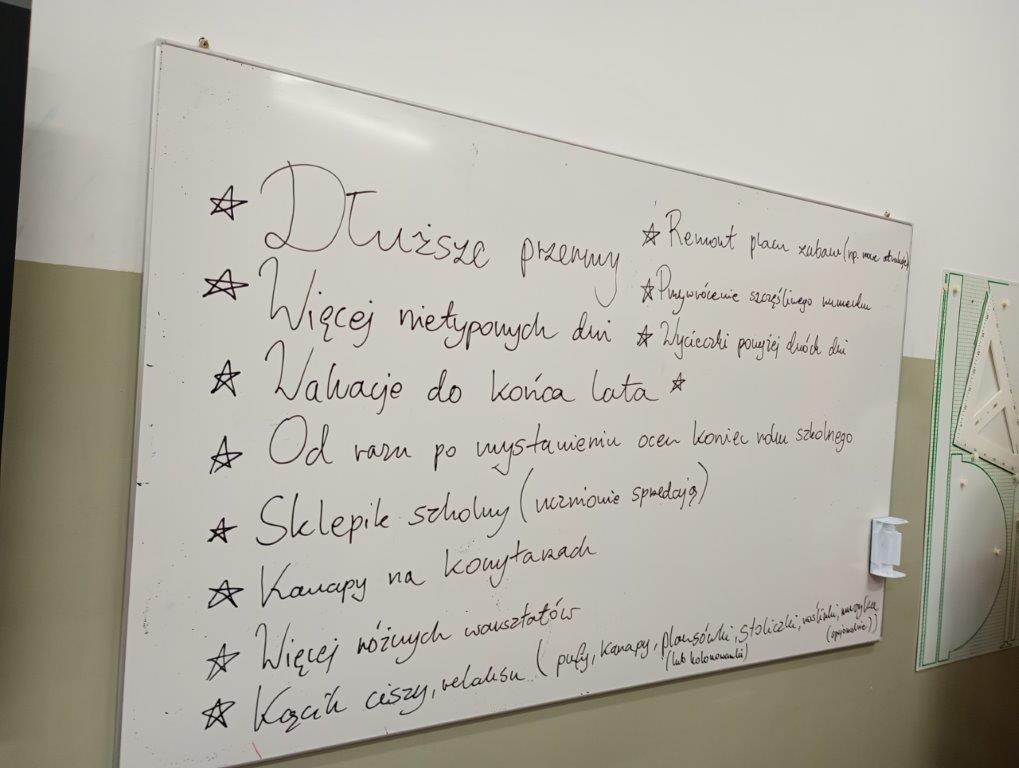 Dłuższe przerwy
Więcej nietypowych dni
Wakacje do końca lata
Od razu po wystawieniu ocen koniec roku szkolnego
Sklepik szkolny (uczniowie sprzedają)
Kanapy na korytarzach
Więcej różnych warsztatów
Kącik ciszy, relaksu (pufy, kanapy, planszówki, stoliczki, roślinki, muzyka
(lub kolorowanki)
(opcjonalnie))
Remont placu zabaw (np. nowe atrakcje)
Przywrócenie szczęśliwego numerku
Wycieczki powyżej dwóch dni